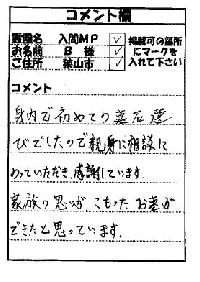 コメント欄
霊園名 入間MP ✓
お名前 B 様 ✓
ご住所 狭山市 ✓
掲載可の箇所
にマークを
入れて下さい
コメント
身内で初めての墓石選
びでしたので親身に相談に
のっていただき、感謝しています。
家族の思いが、こもった お墓が
できたと思っています。